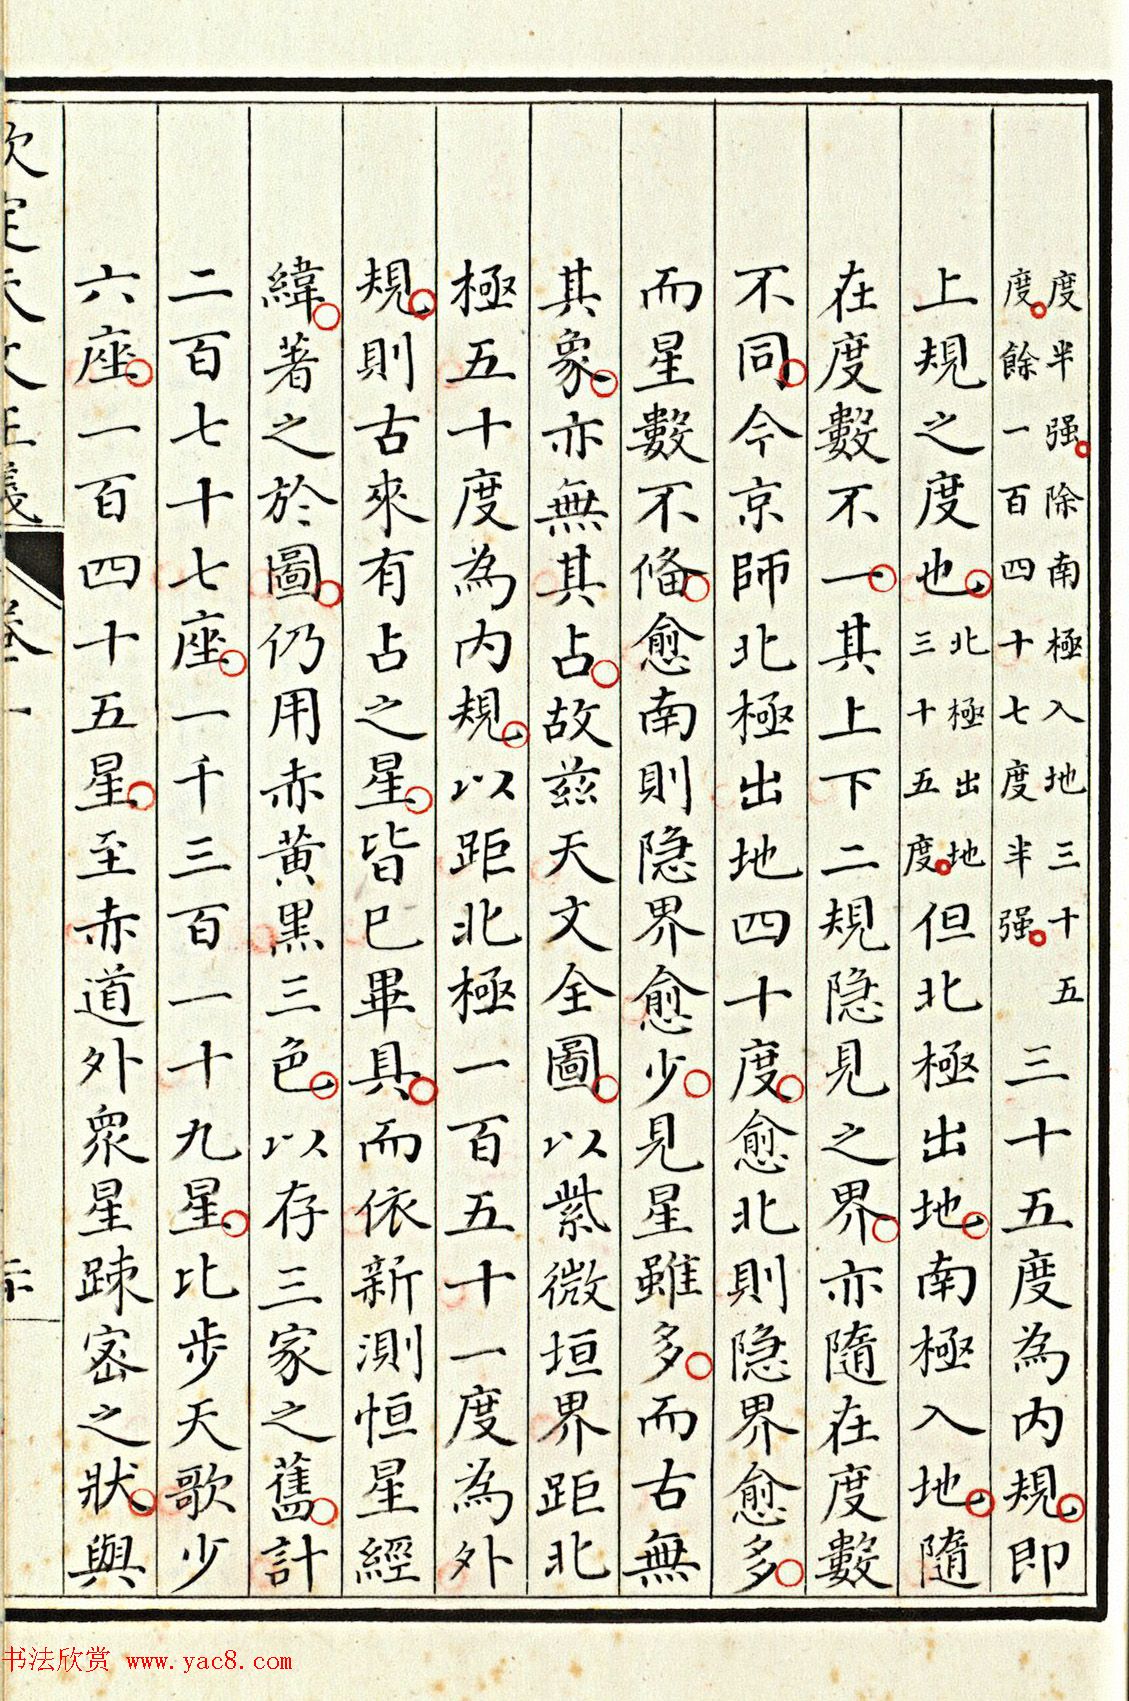 度半强。除南極入地三十五
度。餘一百四十七度半强。
三十五度為内規。即
上規之度也。
北極出地
三十五度。
但北極出地。南極入地。隨
在度數不一。其上下二規隐見之界。亦隨在度數
不同。今京師北極出地四十度。愈北則隐界愈多。
而星數不俻。愈南則隐界愈少。見星雖多。而古無
其象。亦無其占。故兹天文全圖。以紫微垣界距北
極五十度為内規。以距北極一百五十一度為外
規。則古來有占之星。皆巳畢具。而依新測恒星經
緯。著之於圖。仍用赤黄黑三色。以存三家之舊。計
二百七十七座。一千三百一十九星。比步天歌少
六座。一百四十五星。至赤道外衆星踈宻之狀。與
欽定天文正義
卷一
书法欣赏 www.yac8.com